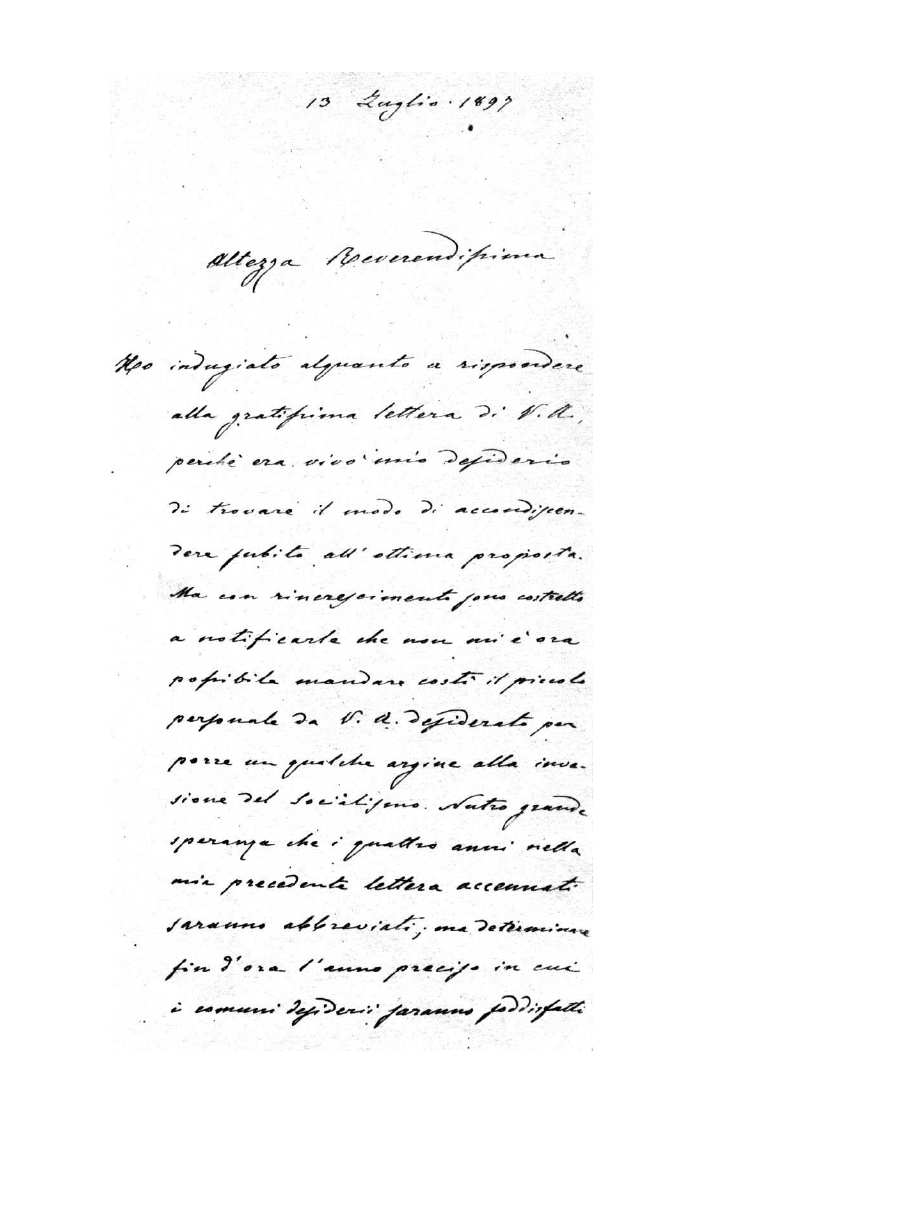 13 Luglio. 1897
Altezza Reverendissima
Ho indugiato alquanto a rispondere
alla gratissima lettera di V. A.,
perchè era vivo mio desiderio
di trovare il modo di accondiscen-
dere subito all'ottima proposta.
Ma con rincrescimento sono costretto
a notificarle che non mi è ora
possibile mandare costì il piccolo
personale da V. A. desiderato per
porre un qualche argine alla inva-
sione del Socialismo. Nutro grande
speranza che i quattro anni nella
mia precedente lettera accennati
saranno abbreviati; ma determinare
fin d'ora l'anno preciso in cui
i comuni desiderii saranno soddisfatti